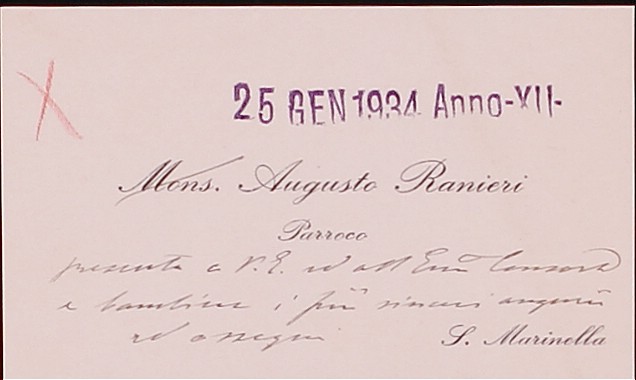 25 GEN 1934 Anno-XII-
Mons. Augusto Ranieri
Parroco
presenta a V. E. ed all'Ecc̃ Consorte
e bambini i più sinceri auguri
ed ossequi
S. Marinella